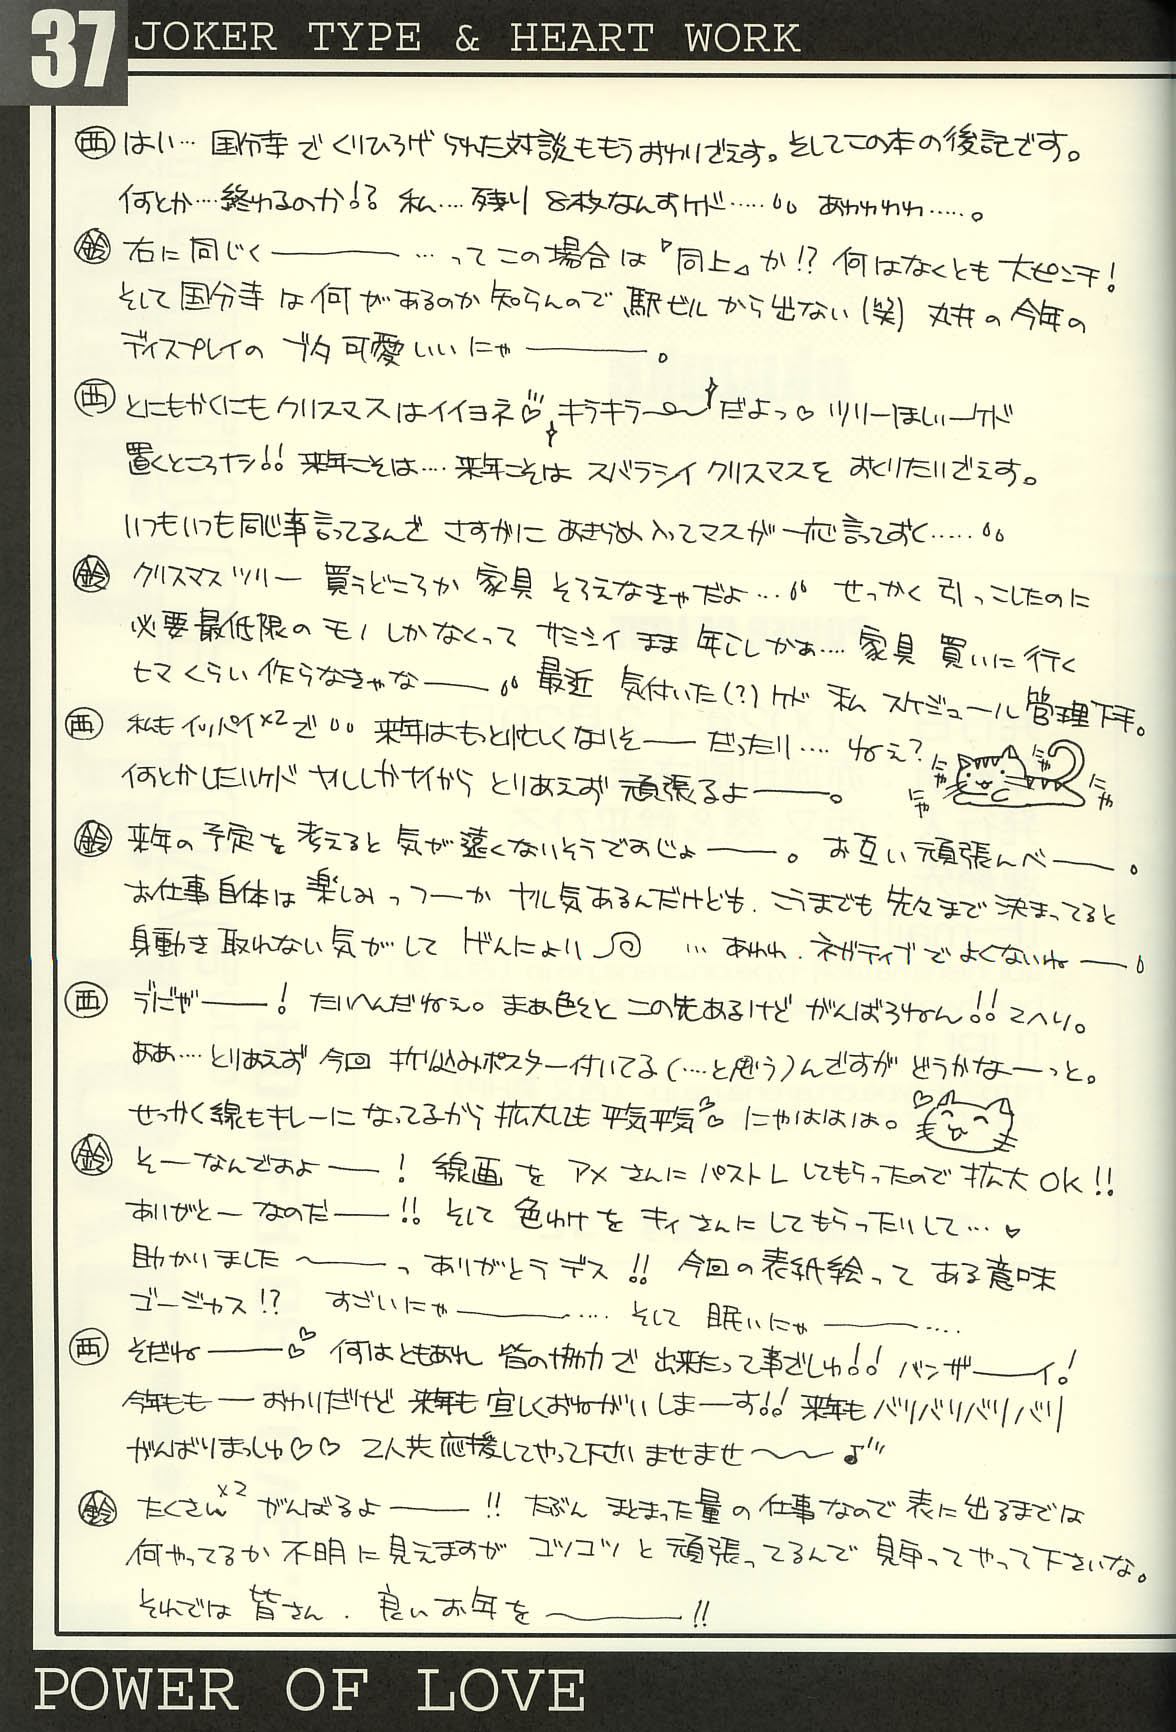 37 JOKER TYPE & HEART WORK
西 はい… 国分寺でくりひろげられた対談ももうおわりざえす。そしてこの本の後記です。
何とか…終わるのか!? 私…. 残り8枚なんすケド…… あわわわわ…..。
鈴 右に同じく――― …ってこの場合は『同上』か!? 何はなくとも大ピンチ!
そして国分寺は何があるのか知らんので駅ビルから出ない(笑) 丸井の今年の
ディスプレイの ブタ可愛いいにゃ―――。
西 とにもかくにもクリスマスはイイヨネ♡ キラキラ〜だよっ♡ ツリーほしいーケド
置くところナシ!! 来年こそは…. 来年こそはスバラシイクリスマスをおくりたいざえす。
いつもいつも同じ事言ってるんで さすがに あきらめ入ってマスが一応言っておく…..
鈴 クリスマスツリー 買うどころか 家具そろえなきゃだよ… せっかく引っこしたのに
必要最低限のモノしかなくって サミシイまま年こしかぁ…. 家具買いに行く
ヒマくらい作らなきゃな―― 最近 気付いた(?)ケド 私 スケジュール管理下手。
西 私もイッパイ×2で 来年はもっと忙しくないそ――だったり…. ねぇ?
何とかしたいケド ヤルしかナイからとりあえず頑張るよ――。
にゃ にゃ にゃ にゃ
鈴 来年の予定を考えると気が遠くないそうですじょ――。お互い頑張んべ――。
お仕事自体は楽しみっつーか ヤル気あるんだけども、こうまでも先々まで決まってると
身動き取れない気がして げんにょり …あわわ、ネガティブでよくないね――
西 うにゃ――! たいへんだねぇ。まぁ色々とこの先あるけど がんばろねん!! てへり。
ああ…. とりあえず今回 折り込みポスター付いてる(…と思う)んですがどうかなーっと。
せっかく線もキレーになってるから拡大しても平気平気♡ にゃははは。
鈴 そーなんですよ――! 線画を アメさんに パストレしてもらったので拡大OK!!
ありがとーなのだ――!! そして 色わけを キィさんにしてもらったりして…♡
助かりました〜――っ ありがとうデス!! 今回の表紙絵って ある意味
ゴージャス!? すごいにゃ―――…. そして 眠いにゃ―――….
西 そだね――♡ 何はともあれ 皆の協力で出来たって事でしゅ!! バンザ――イ!
今年ももーおわりだけど 来年も宜しくおねがいしまーす!! 来年もバリバリバリバリ
がんばりまっしゅ♡♡ 2人共応援してやって下さいませませ〜〜♪
鈴 たくさん×2 がんばるよ――!! たぶん まとまった量の仕事なので表に出るまでは
何やってるか不明に見えますが コツコツと頑張ってるんで 見守ってやって下さいな。
それでは 皆さん、良いお年を〜―――!!
POWER OF LOVE